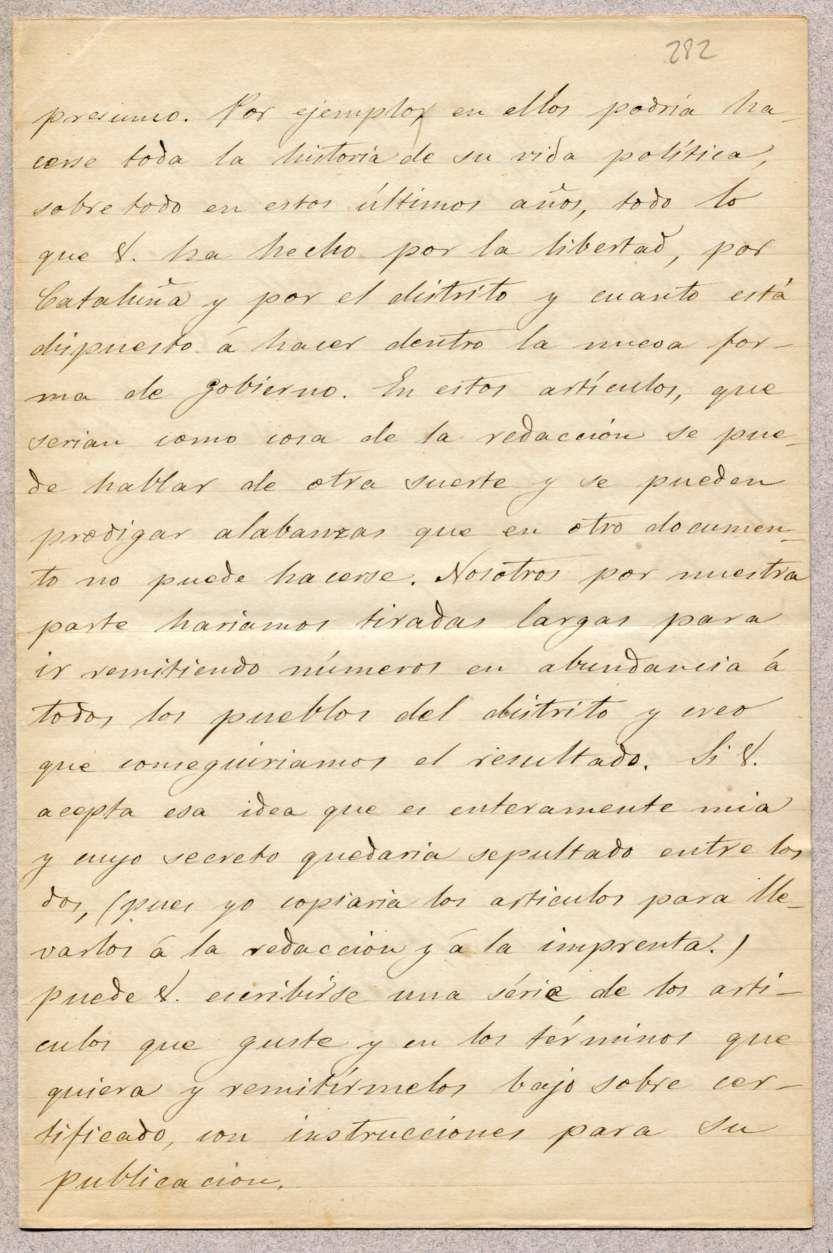 282
presumo. Por ejemplo, en ellos podría ha-
cerse toda la historia de su vida política,
sobre todo en estos últimos años, todo lo
que V. ha hecho por la libertad, por
Cataluña y por el distrito y cuanto está
dispuesto á hacer dentro la nueva for-
ma de gobierno. En estos artículos, que
serian como cosa de la redacción se pue-
de hablar de otra suerte y se pueden
prodigar alabanzas que en otro documen-
to no puede hacerse. Nosotros por nuestra
parte hariamos tiradas largas para
ir remitiendo números en abundancia á
todos los pueblos del distrito y creo
que conseguiriamos el resultado. Si V.
acepta esa idea que es enteramente mia
y cuyo secreto quedaria sepultado entre los
dos, (pues yo copiaria los articulos para lle-
varlos á la redacción y á la imprenta.)
puede V. escribirse una série de los arti-
culos que guste y en los términos que
quiera y remitírmelos bajo sobre cer-
tificado, con instrucciones para su
publicacion.